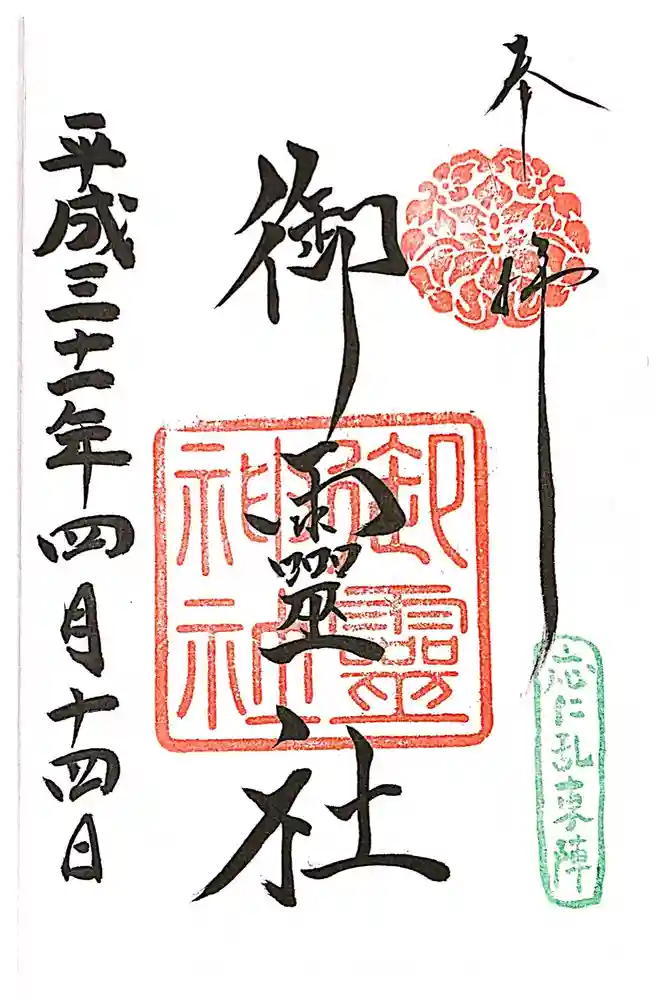 奉拝
応仁乱東陣
御靈社
御靈
神社
平成三十一年四月十四日